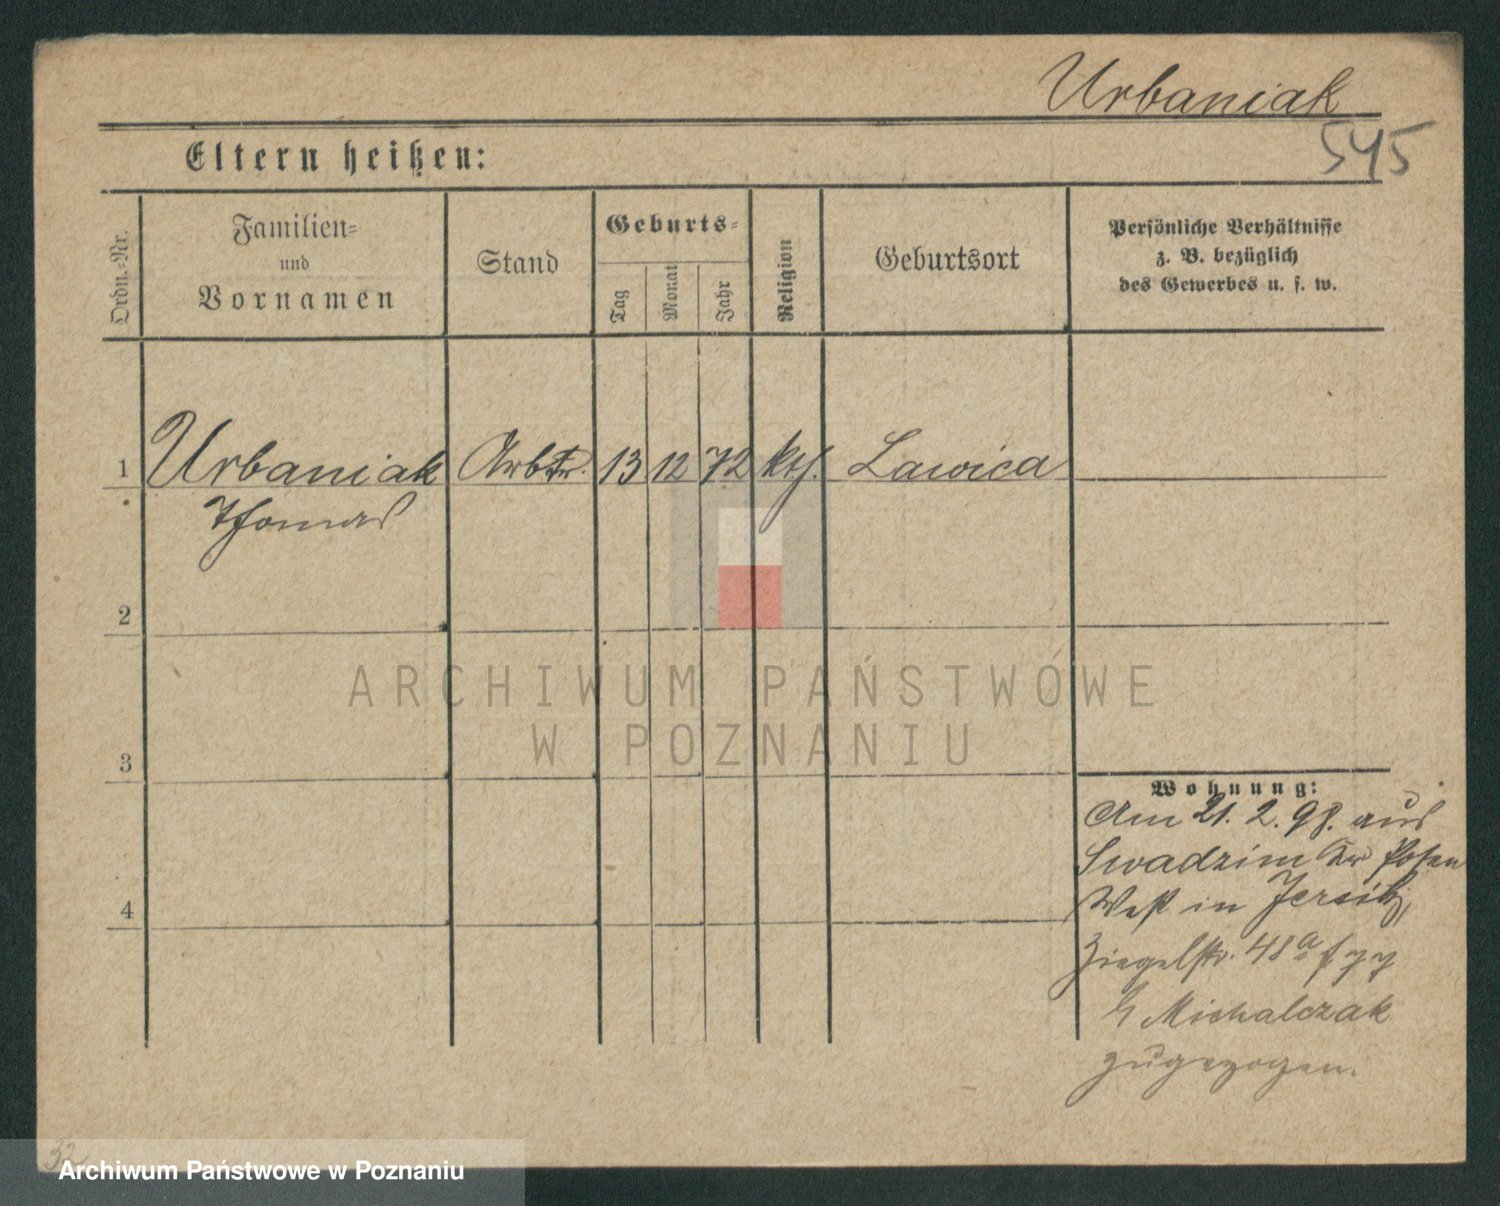 Urbaniak
545
Eltern heißen:
Ordn.-Nr.
Familien-
und
Vornamen
Stand
Geburts-
Tag
Monat
Jahr
Religion
Geburtsort
Persönliche Verhältnisse
z. B. bezüglich
des Gewerbes u. s. w.
1 Urbaniak Arbtr. 13 12 72 kth. Lawica
Thomas
2
3
Wohnung:
Am 21. 2. 98. aus
Swadzim Kr Posen
West in Jersitz,
4
Ziegelstr. 48a
Michalczak
zugezogen.
32
ARCHIWUM PAŃSTWOWE
W POZNANIU
Archiwum Państwowe w Poznaniu